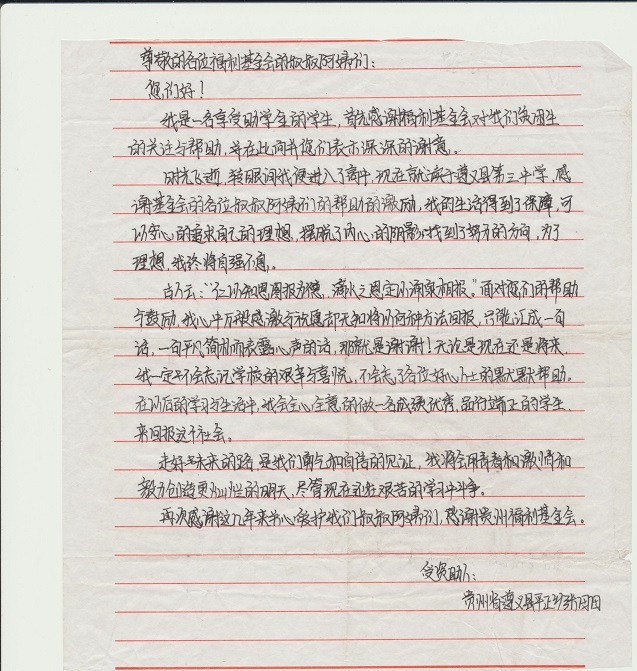 尊敬的各位福利基金会的叔叔阿姨们：
您们好！
我是一名享受助学金的学生，首先感谢福利基金会对我们贫困生
的关注与帮助，并在此向你们表示深深的谢意。
时光飞逝，转眼间我便进入了高中，现在就读于遵义县第三中学，感
谢基金会的各位叔叔阿姨们的帮助的激励，我的生活得到了保障，可
以安心的追求自己的理想，摆脱了内心的阴影，找到了努力的方向，为了
理想，我终将自强不息。
古人云："仁以知恩图报为德，滴水之恩定以涌泉相报。"面对您们的帮助
与鼓励，我心中万般感激与祝愿却不知将以何种方法回报，只能汇成一句
话，一句平凡简朴而表露心声的话，那就是谢谢！无论是现在还是将来，
我一定不会忘记学校的艰辛与喜悦，不会忘了各位好心人士的默默帮助。
在以后的学习与生活中，我会全心全意的做一名成绩优秀，品行端正的学生，
来回报这个社会。
走好未来的路，是我们朝气和自信的见证，我将会用青春和激情和
努力创造更灿烂的明天，尽管现在还在艰苦的学习中斗争。
再次感谢这几年来关心爱护我们叔叔阿姨们，感谢贵州福利基金会。
受资助人：
贵州省遵义县平正乡